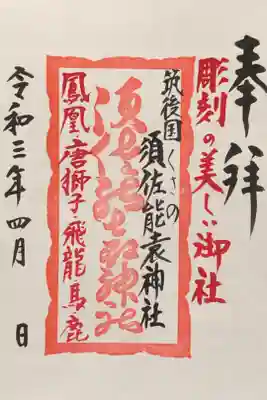 奉拝
彫刻の美しい御社
筑後国くさの
須佐能袁神社
鳳凰・唐獅子・飛龍・馬・鹿
令和三年四月 日